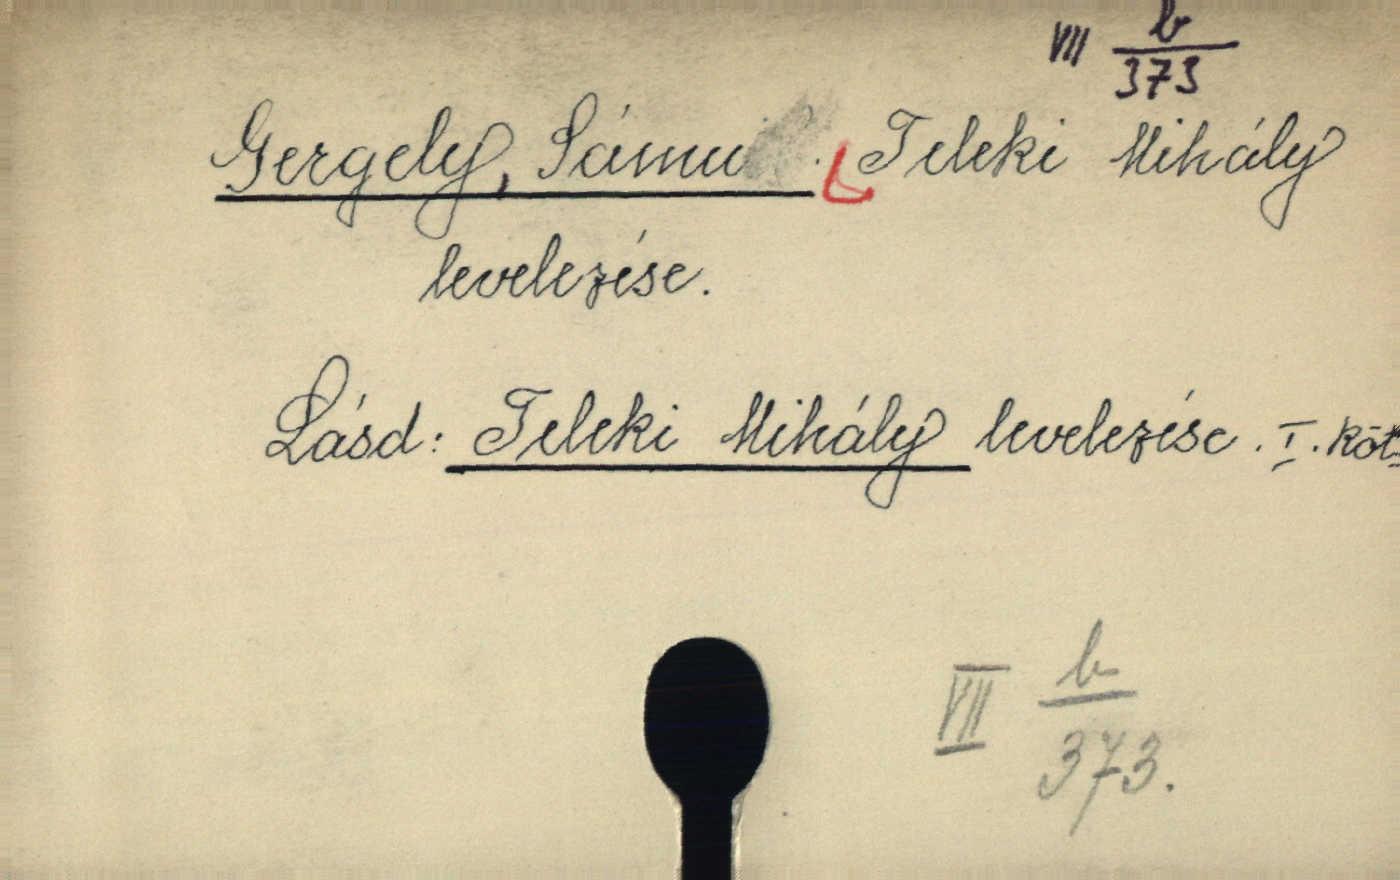 VII b/373
Gergely, Sámu . Teleki Mihály
levelezése.
Lásd: Teleki Mihály levelezése. I. köt.
VII b/373.